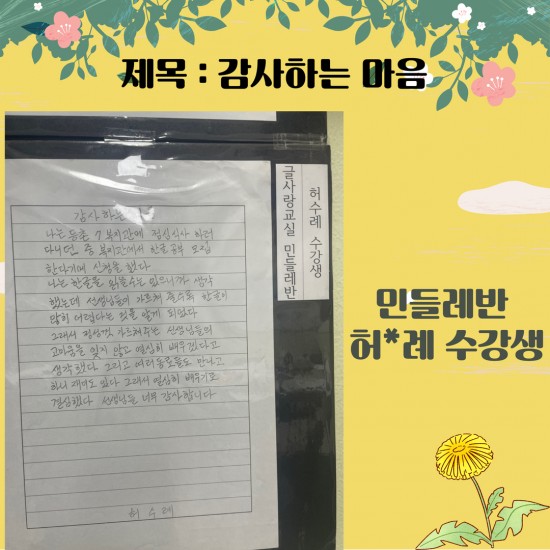 제목 : 감사하는 마음
감사하는
나는 등촌 7 복지관에 점심식사 하러
다니던 중 복지관에서 한글공부 모집
한다기에 신청을 했다
나는 한글을 읽을수는 있으니까 생각
했는데 선생님들이 가르쳐 줄수록 한글이
많이 어렵다는 것을 알게 되었다
그래서 정성껏 가르쳐주는 선생님들의
고마움을 잊지 않고 열심히 배우겠다고
생각했다 그리고 여러동료들도 만나고
하니 재미도 있다 그래서 열심히 배우기로
결심했다 선생님들 너무 감사합니다
허수례
허수례 수강생
글사랑교실 민들레반
민들레반
허*례 수강생